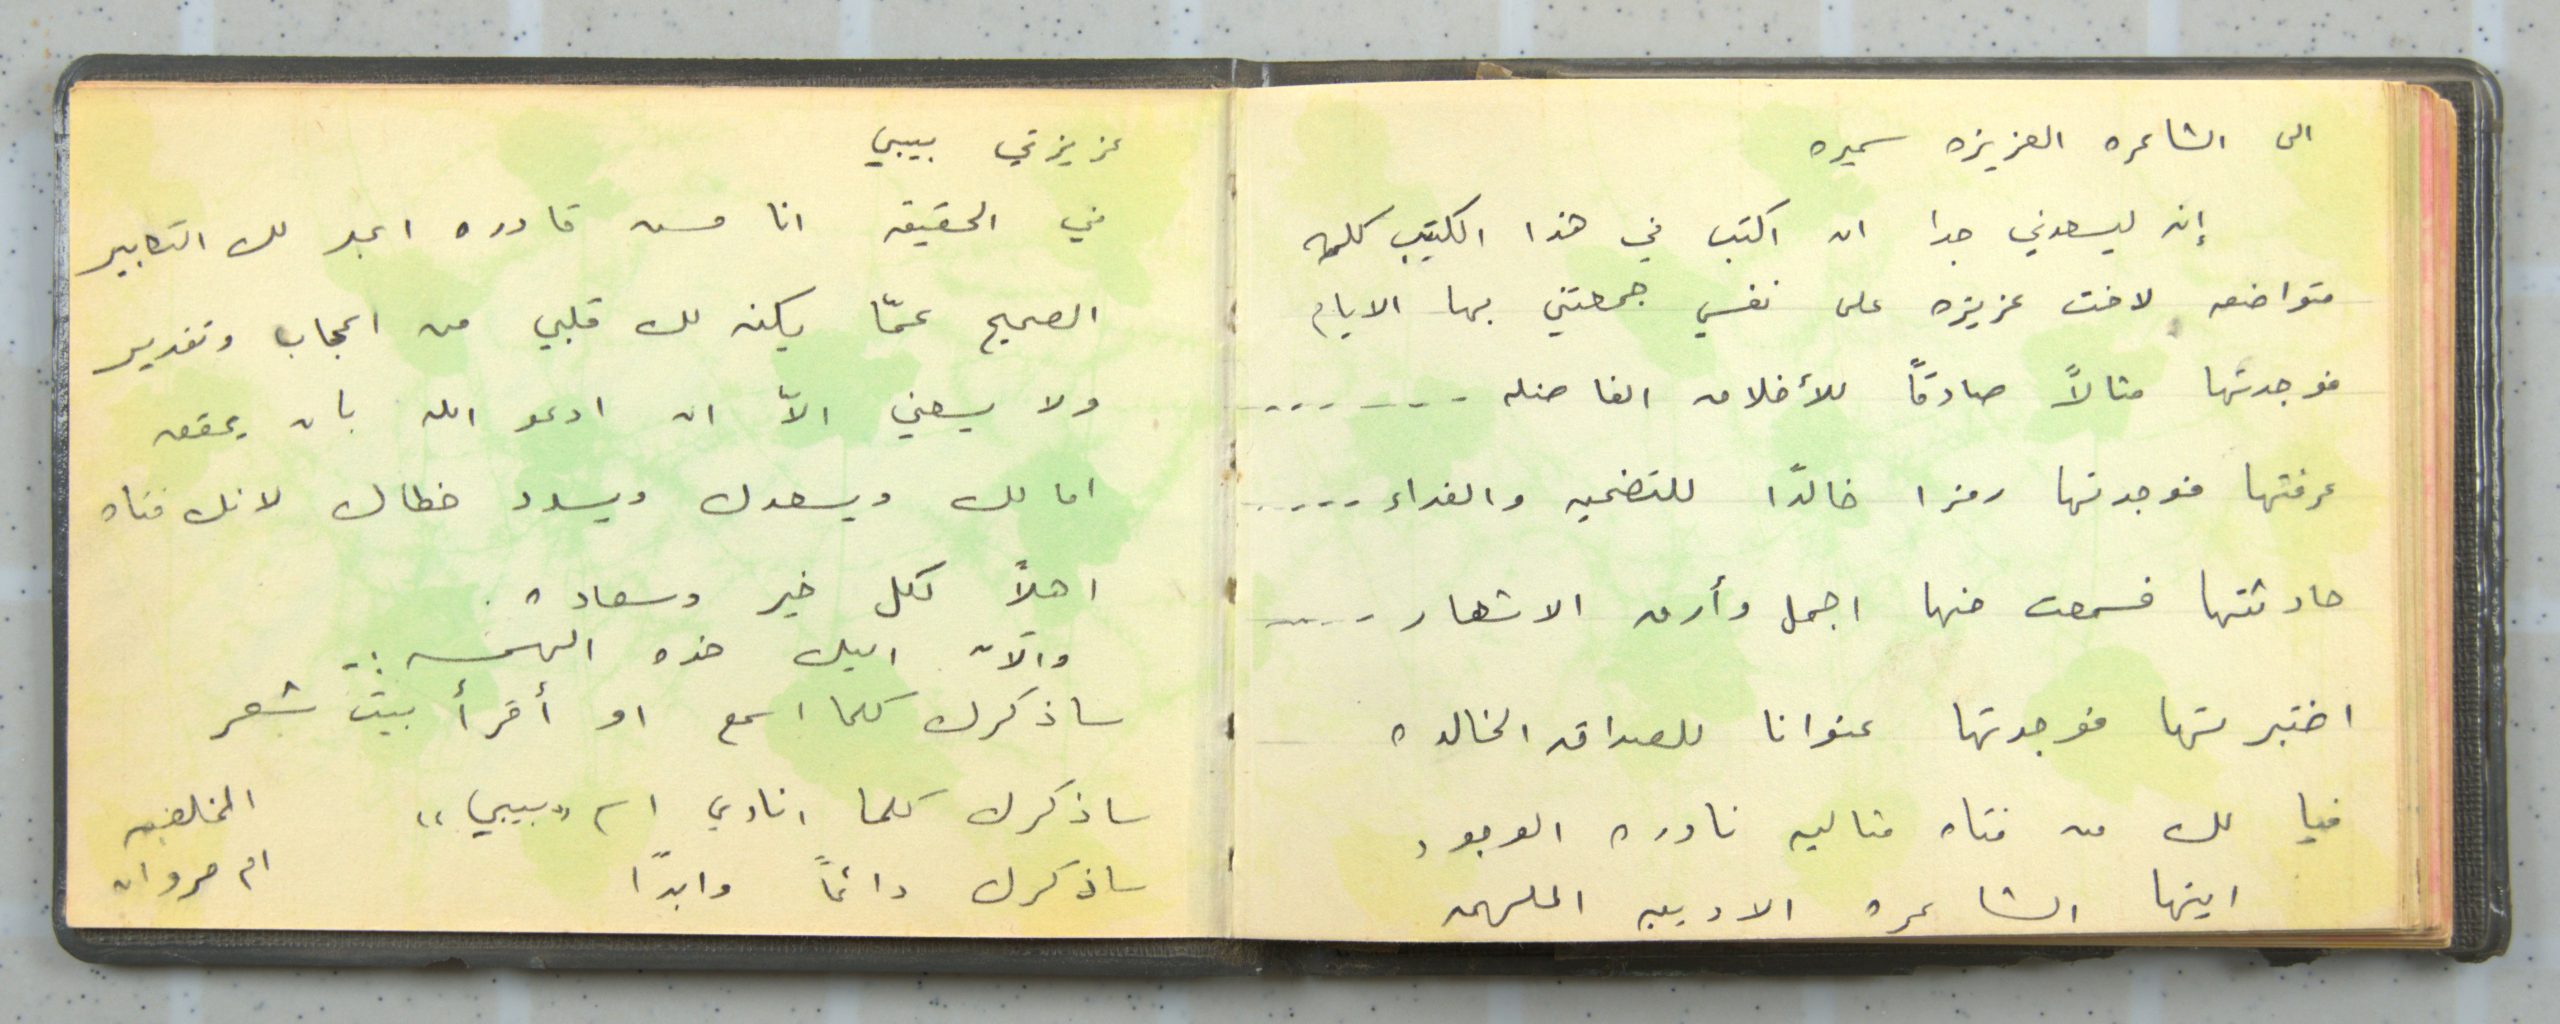 الى الشاعره العزيزه سميره
إنه ليسعدني جدا ان اكتب في هذا الكتيب كلمه
متواضعه لاخت عزيزه على نفسي جمعتني بها الايام
فوجدتها مثالاً صادقاً للأخلاق الفاضله -------
عرفتها فوجدتها رمزا خالدًا للتضحيه والفداء -----
حادثتها فسمعت منها اجمل وأرق الاشعار -----
اختبرتها فوجدتها عنوانا للصداقه الخالده
فيا لك من فتاه مثاليه نادره الوجود
ايتها الشاعره الاديبه الملهمه
عزيزتي بيبي
في الحقيقه انا مش قادره اعبر لك التعابير
الصحيح عمّا يكنه لك قلبي من اعجاب وتقدير
ولا يسعني الاّ ان ادعو الله بان يحقق
امالك ويسعدك ويسدد خطاك لانك فتاه
اهلاً لكل خير وسعاده .
والآن اليك هذه الهمسه :-
ساذكرك كلما اسمع او أقرأ بيت شعر
ساذكرك كلما انادي اسم «بيبي»
ساذكرك دائماً وابدًا
المخلصه
ام مروان